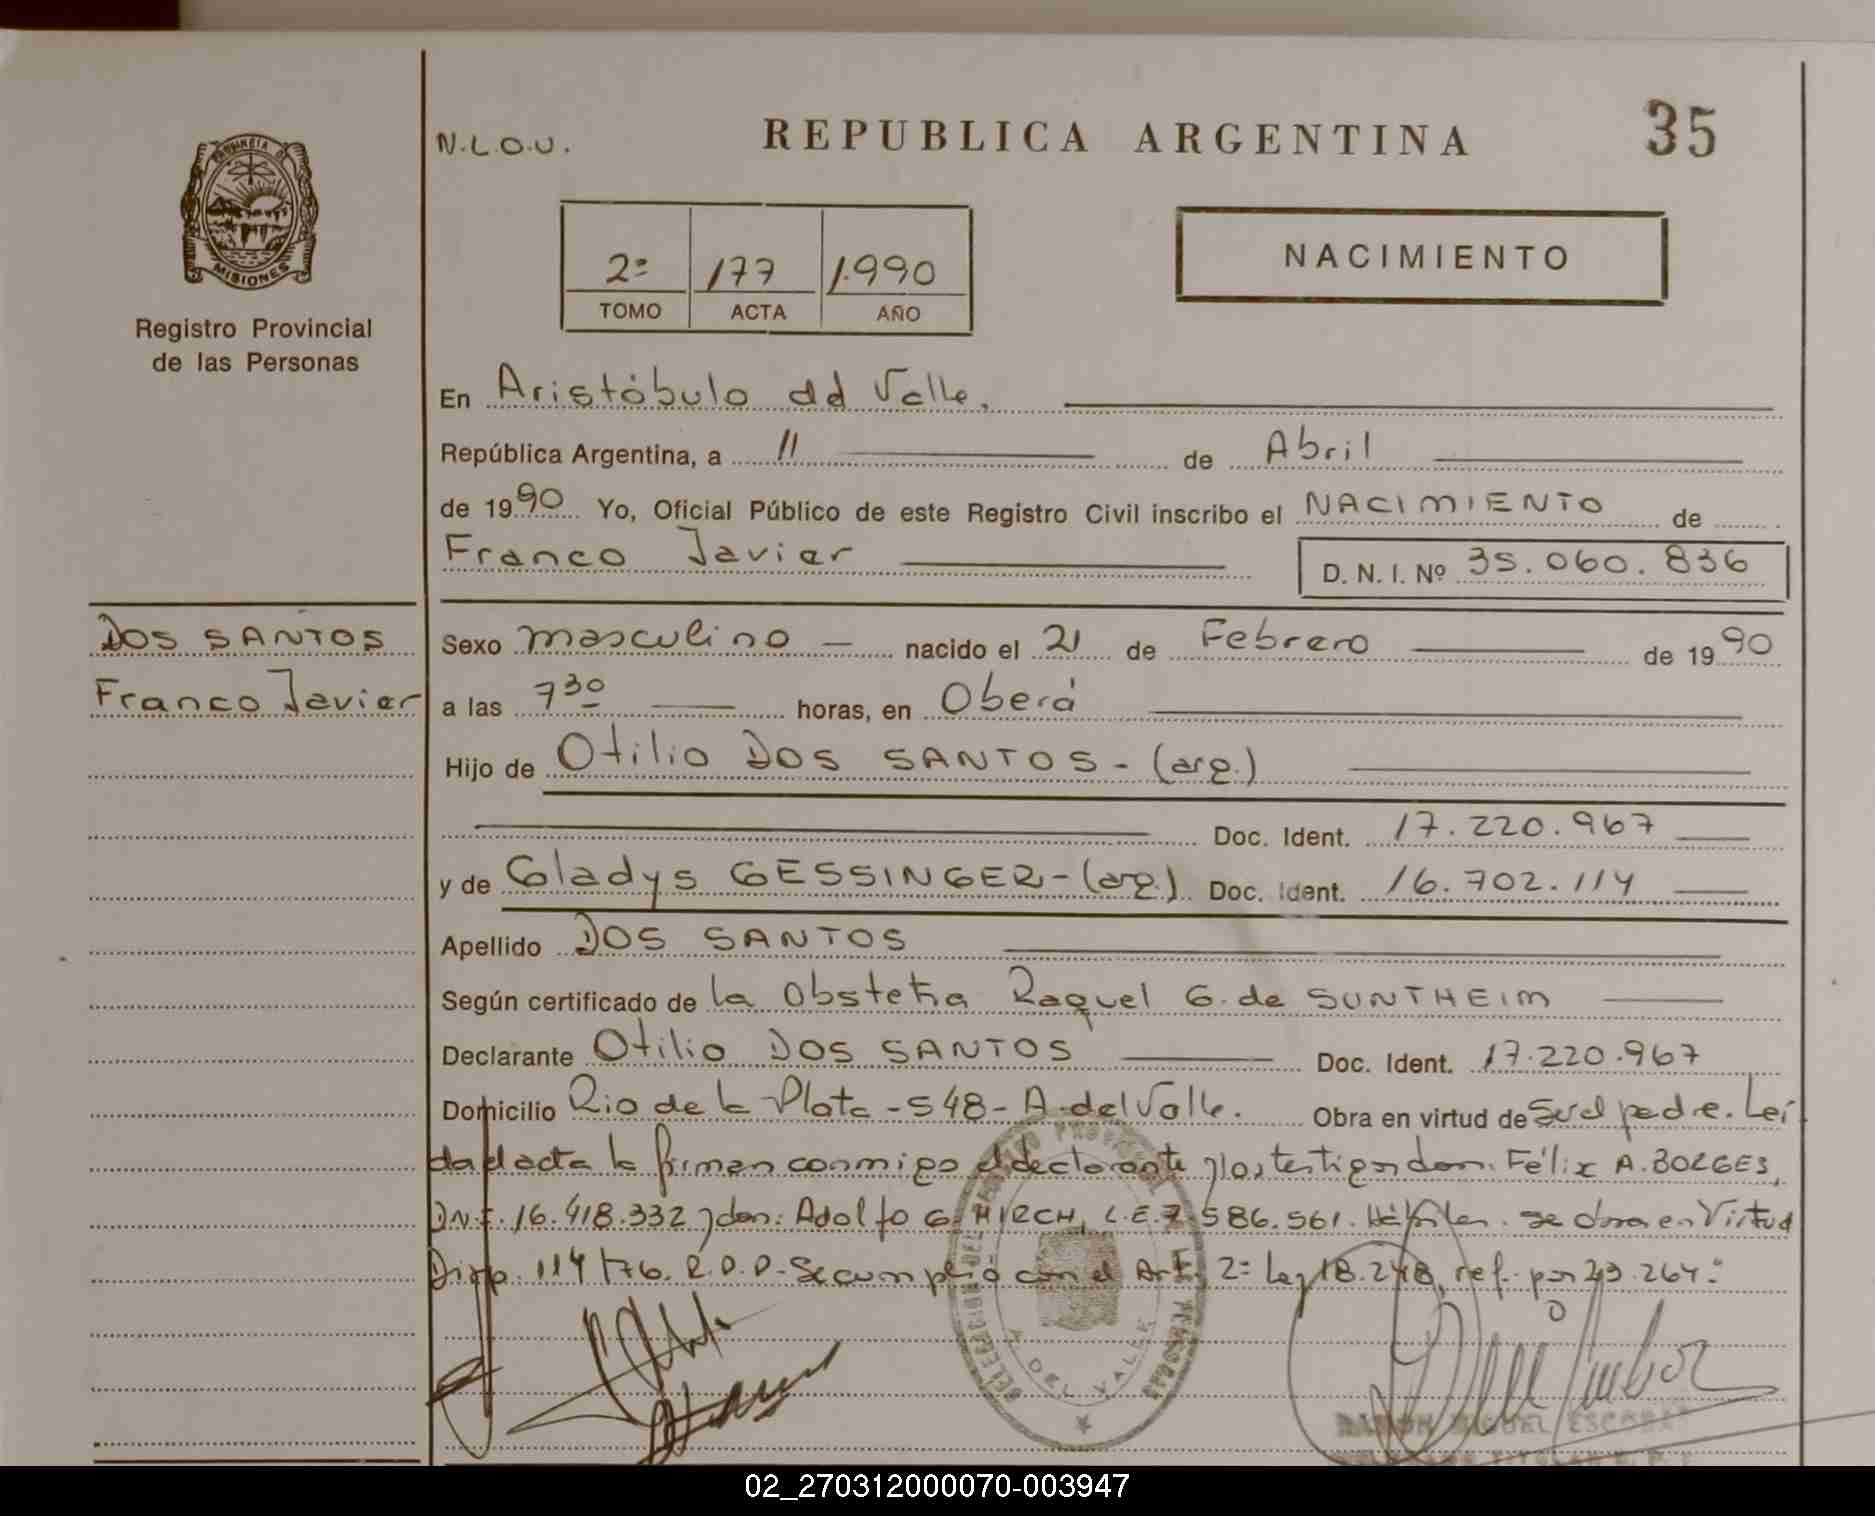 PROVINCIA D
MISIONES
Registro Provincial
de las Personas
N.L.O.U.
REPUBLICA ARGENTINA
35
2º 177 1.990
TOMO ACTA AÑO
NACIMIENTO
En Aristóbulo del Valle.
República Argentina, a 11 de Abril
de 1990 Yo, Oficial Público de este Registro Civil inscribo el NACIMIENTO de
Franco Javier
D. N. I. Nº 35.060.836
DOS SANTOS
Franco Javier
Sexo masculino — nacido el 21 de Febrero de 1990
a las 7 30 horas, en Oberá
Hijo de Otilio DOS SANTOS - (arg.)
Doc. Ident. 17.220.967
y de Gladys GESSINGER - (arg.) Doc. Ident. 16.702.114
Apellido DOS SANTOS
Según certificado de la Obstetra Raquel G. de SUNTHEIM
Declarante Otilio DOS SANTOS Doc. Ident. 17.220.967
Domicilio Rio de la Plata - 548 - A. del Valle. Obra en virtud de Ser el padre. Leí
da el acta la firman conmigo el declarante y los testigos don: Félix A. BORGES,
DN.I. 16.418.332 y don: Adolfo G. HIRCH, L.E. 7.586.561. Hábiles. se obra en Virtud
Disp. 114/76. R.P.P. Se cumplió con el Art. 2º Ley 18.248, ref. por 23.264.
DELEGACION DEL REGISTRO PROVINCIAL PERSONAS
A. DEL VALLE
RAMON MIGUEL ESCOBAR
02_270312000070-003947